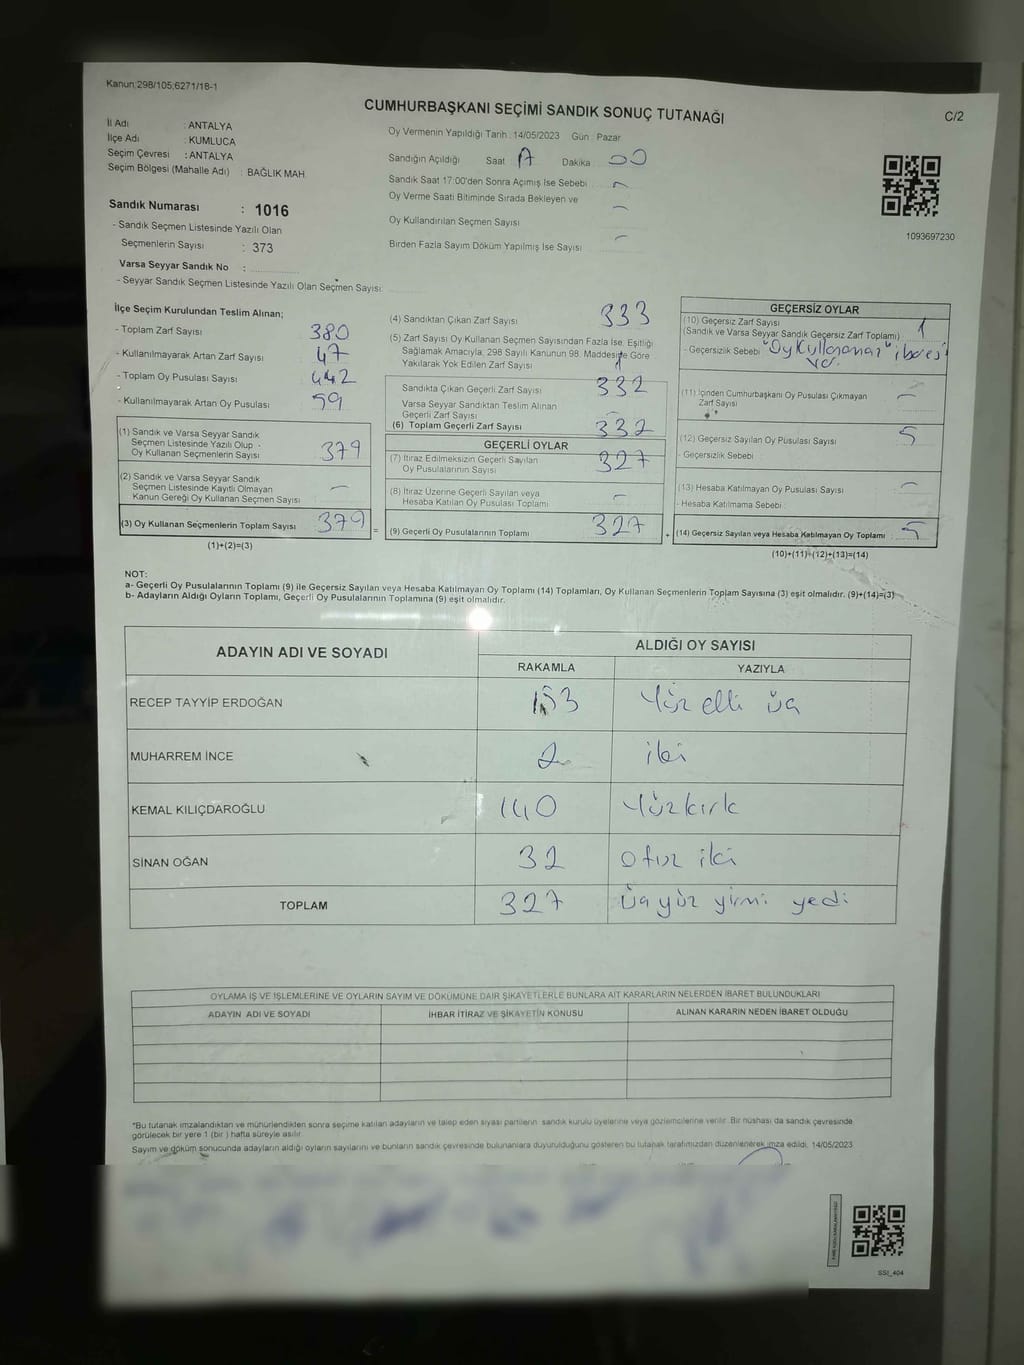 Kanun:298/105;6271/18-1
CUMHURBAŞKANI SEÇİMİ SANDIK SONUÇ TUTANAĞI
C/2
İl Adı : ANTALYA
İlçe Adı : KUMLUCA
Seçim Çevresi : ANTALYA
Seçim Bölgesi (Mahalle Adı) : BAĞLIK MAH.
Sandık Numarası : 1016
- Sandık Seçmen Listesinde Yazılı Olan
Seçmenlerin Sayısı : 373
Varsa Seyyar Sandık No :
- Seyyar Sandık Seçmen Listesinde Yazılı Olan Seçmen Sayısı:
Oy Vermenin Yapıldığı Tarih : 14/05/2023 Gün : Pazar
Sandığın Açıldığı Saat Dakika 00
Sandık Saat 17:00'den Sonra Açımış İse Sebebi
Oy Verme Saati Bitiminde Sırada Bekleyen ve
Oy Kullandırılan Seçmen Sayısı
Birden Fazla Sayım Döküm Yapılmış İse Sayısı
1093697230
İlçe Seçim Kurulundan Teslim Alınan;
- Toplam Zarf Sayısı 380
- Kullanılmayarak Artan Zarf Sayısı 47
- Toplam Oy Pusulası Sayısı 442
- Kullanılmayarak Artan Oy Pusulası 59
(1) Sandık ve Varsa Seyyar Sandık
Seçmen Listesinde Yazılı Olup
Oy Kullanan Seçmenlerin Sayısı 379
(2) Sandık ve Varsa Seyyar Sandık
Seçmen Listesinde Kayıtlı Olmayan
Kanun Gereği Oy Kullanan Seçmen Sayısı –
(3) Oy Kullanan Seçmenlerin Toplam Sayısı 379
(1)+(2)=(3)
(4) Sandıktan Çıkan Zarf Sayısı 333
(5) Zarf Sayısı Oy Kullanan Seçmen Sayısından Fazla İse, Eşitliği
Sağlamak Amacıyla, 298 Sayılı Kanunun 98. Maddesine Göre
Yakılarak Yok Edilen Zarf Sayısı 1
Sandıkta Çıkan Geçerli Zarf Sayısı 332
Varsa Seyyar Sandıktan Teslim Alınan
Geçerli Zarf Sayısı –
(6) Toplam Geçerli Zarf Sayısı 332
GEÇERLİ OYLAR
(7) İtiraz Edilmeksizin Geçerli Sayılan
Oy Pusulalarının Sayısı 327
(8) İtiraz Üzerine Geçerli Sayılan veya
Hesaba Katılan Oy Pusulası Toplamı –
= (9) Geçerli Oy Pusulalarının Toplamı 327
GEÇERSİZ OYLAR
(10) Geçersiz Zarf Sayısı
(Sandık ve Varsa Seyyar Sandık Geçersiz Zarf Toplamı) 1
- Geçersizlik Sebebi
(11) İçinden Cumhurbaşkanı Oy Pusulası Çıkmayan
Zarf Sayısı –
(12) Geçersiz Sayılan Oy Pusulası Sayısı 5
- Geçersizlik Sebebi
(13) Hesaba Katılmayan Oy Pusulası Sayısı –
- Hesaba Katılmama Sebebi
+ (14) Geçersiz Sayılan veya Hesaba Katılmayan Oy Toplamı 5
(10)+(11)+(12)+(13)=(14)
NOT:
a- Geçerli Oy Pusulalarının Toplamı (9) ile Geçersiz Sayılan veya Hesaba Katılmayan Oy Toplamı (14) Toplamları, Oy Kullanan Seçmenlerin Toplam Sayısına (3) eşit olmalıdır. (9)+(14)=(3)
b- Adayların Aldığı Oyların Toplamı, Geçerli Oy Pusulalarının Toplamına (9) eşit olmalıdır.
ADAYIN ADI VE SOYADI
ALDIĞI OY SAYISI
RAKAMLA YAZIYLA
RECEP TAYYİP ERDOĞAN 153 Yüz elli üç
MUHARREM İNCE 2 iki
KEMAL KILIÇDAROĞLU 140 Yüzkırk
SİNAN OĞAN 32 otuz iki
TOPLAM 327 üçyüz yirmi yedi
OYLAMA İŞ VE İŞLEMLERİNE VE OYLARIN SAYIM VE DÖKÜMÜNE DAİR ŞİKAYETLERLE BUNLARA AİT KARARLARIN NELERDEN İBARET BULUNDUKLARI
ADAYIN ADI VE SOYADI İHBAR İTİRAZ VE ŞİKAYETİN KONUSU ALINAN KARARIN NEDEN İBARET OLDUĞU
*Bu tutanak imzalandıktan ve mühürlendikten sonra seçime katılan adayların ve talep eden siyasi partilerin sandık kurulu üyelerine veya gözlemcilerine verilir. Bir nüshası da sandık çevresinde
görülecek bir yere 1 (bir) hafta süreyle asılır.
Sayım ve döküm sonucunda adayların aldığı oyların sayılarını ve bunların sandık çevresinde bulunanlara duyurulduğunu gösteren bu tutanak tarafımızdan düzenlenerek imza edildi. 14/05/2023
SSİ_404